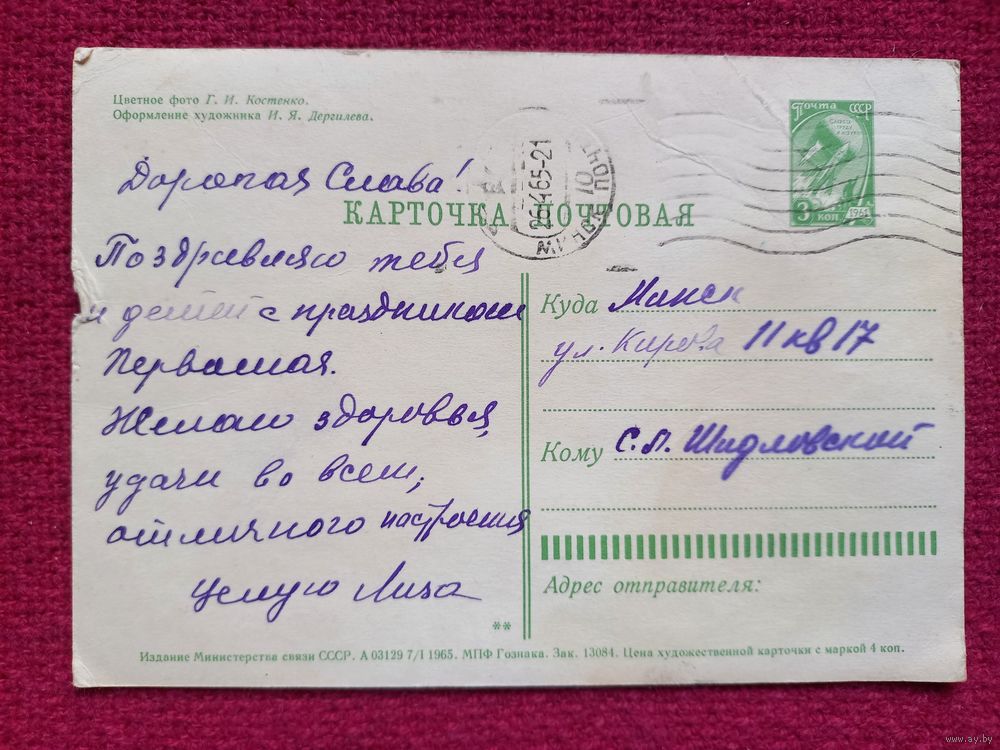 Цветное фото Г. И. Костенко.
Оформление художника И. Я. Дергилева.
Почта СССР
3 коп
1961
26 65-21
МИНСК 10
КАРТОЧКА ПОЧТОВАЯ
Дорогая Слава!
Поздравляю тебя
и детей с праздником
Первомая.
Желаю здоровья,
удачи во всем,
отличного настроения
Целую Лиза
Куда Минск
ул. Кирова 11 кв 17
Кому С.Л. Шидловской
Адрес отправителя:
**
Издание Министерства связи СССР. А 03129 7/I 1965. МПФ Гознака. Зак. 13084. Цена художественной карточки с маркой 4 коп.
www.ay.by